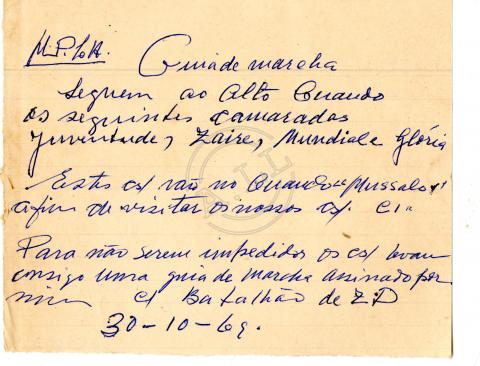 M.P.L.A.
Guia de marcha
Seguem ao Alto Cuando
os seguintes camaradas
Juventude, Zaire, Mundial e Glória
Estes c/ vão no Cuando "Mussalo"
afim de visitar os nossos c/.
Para não serem impedidos os c/ levam
consigo uma guia de marcha assinado por
mim c/ Batalhão de ZD
30-10-69.